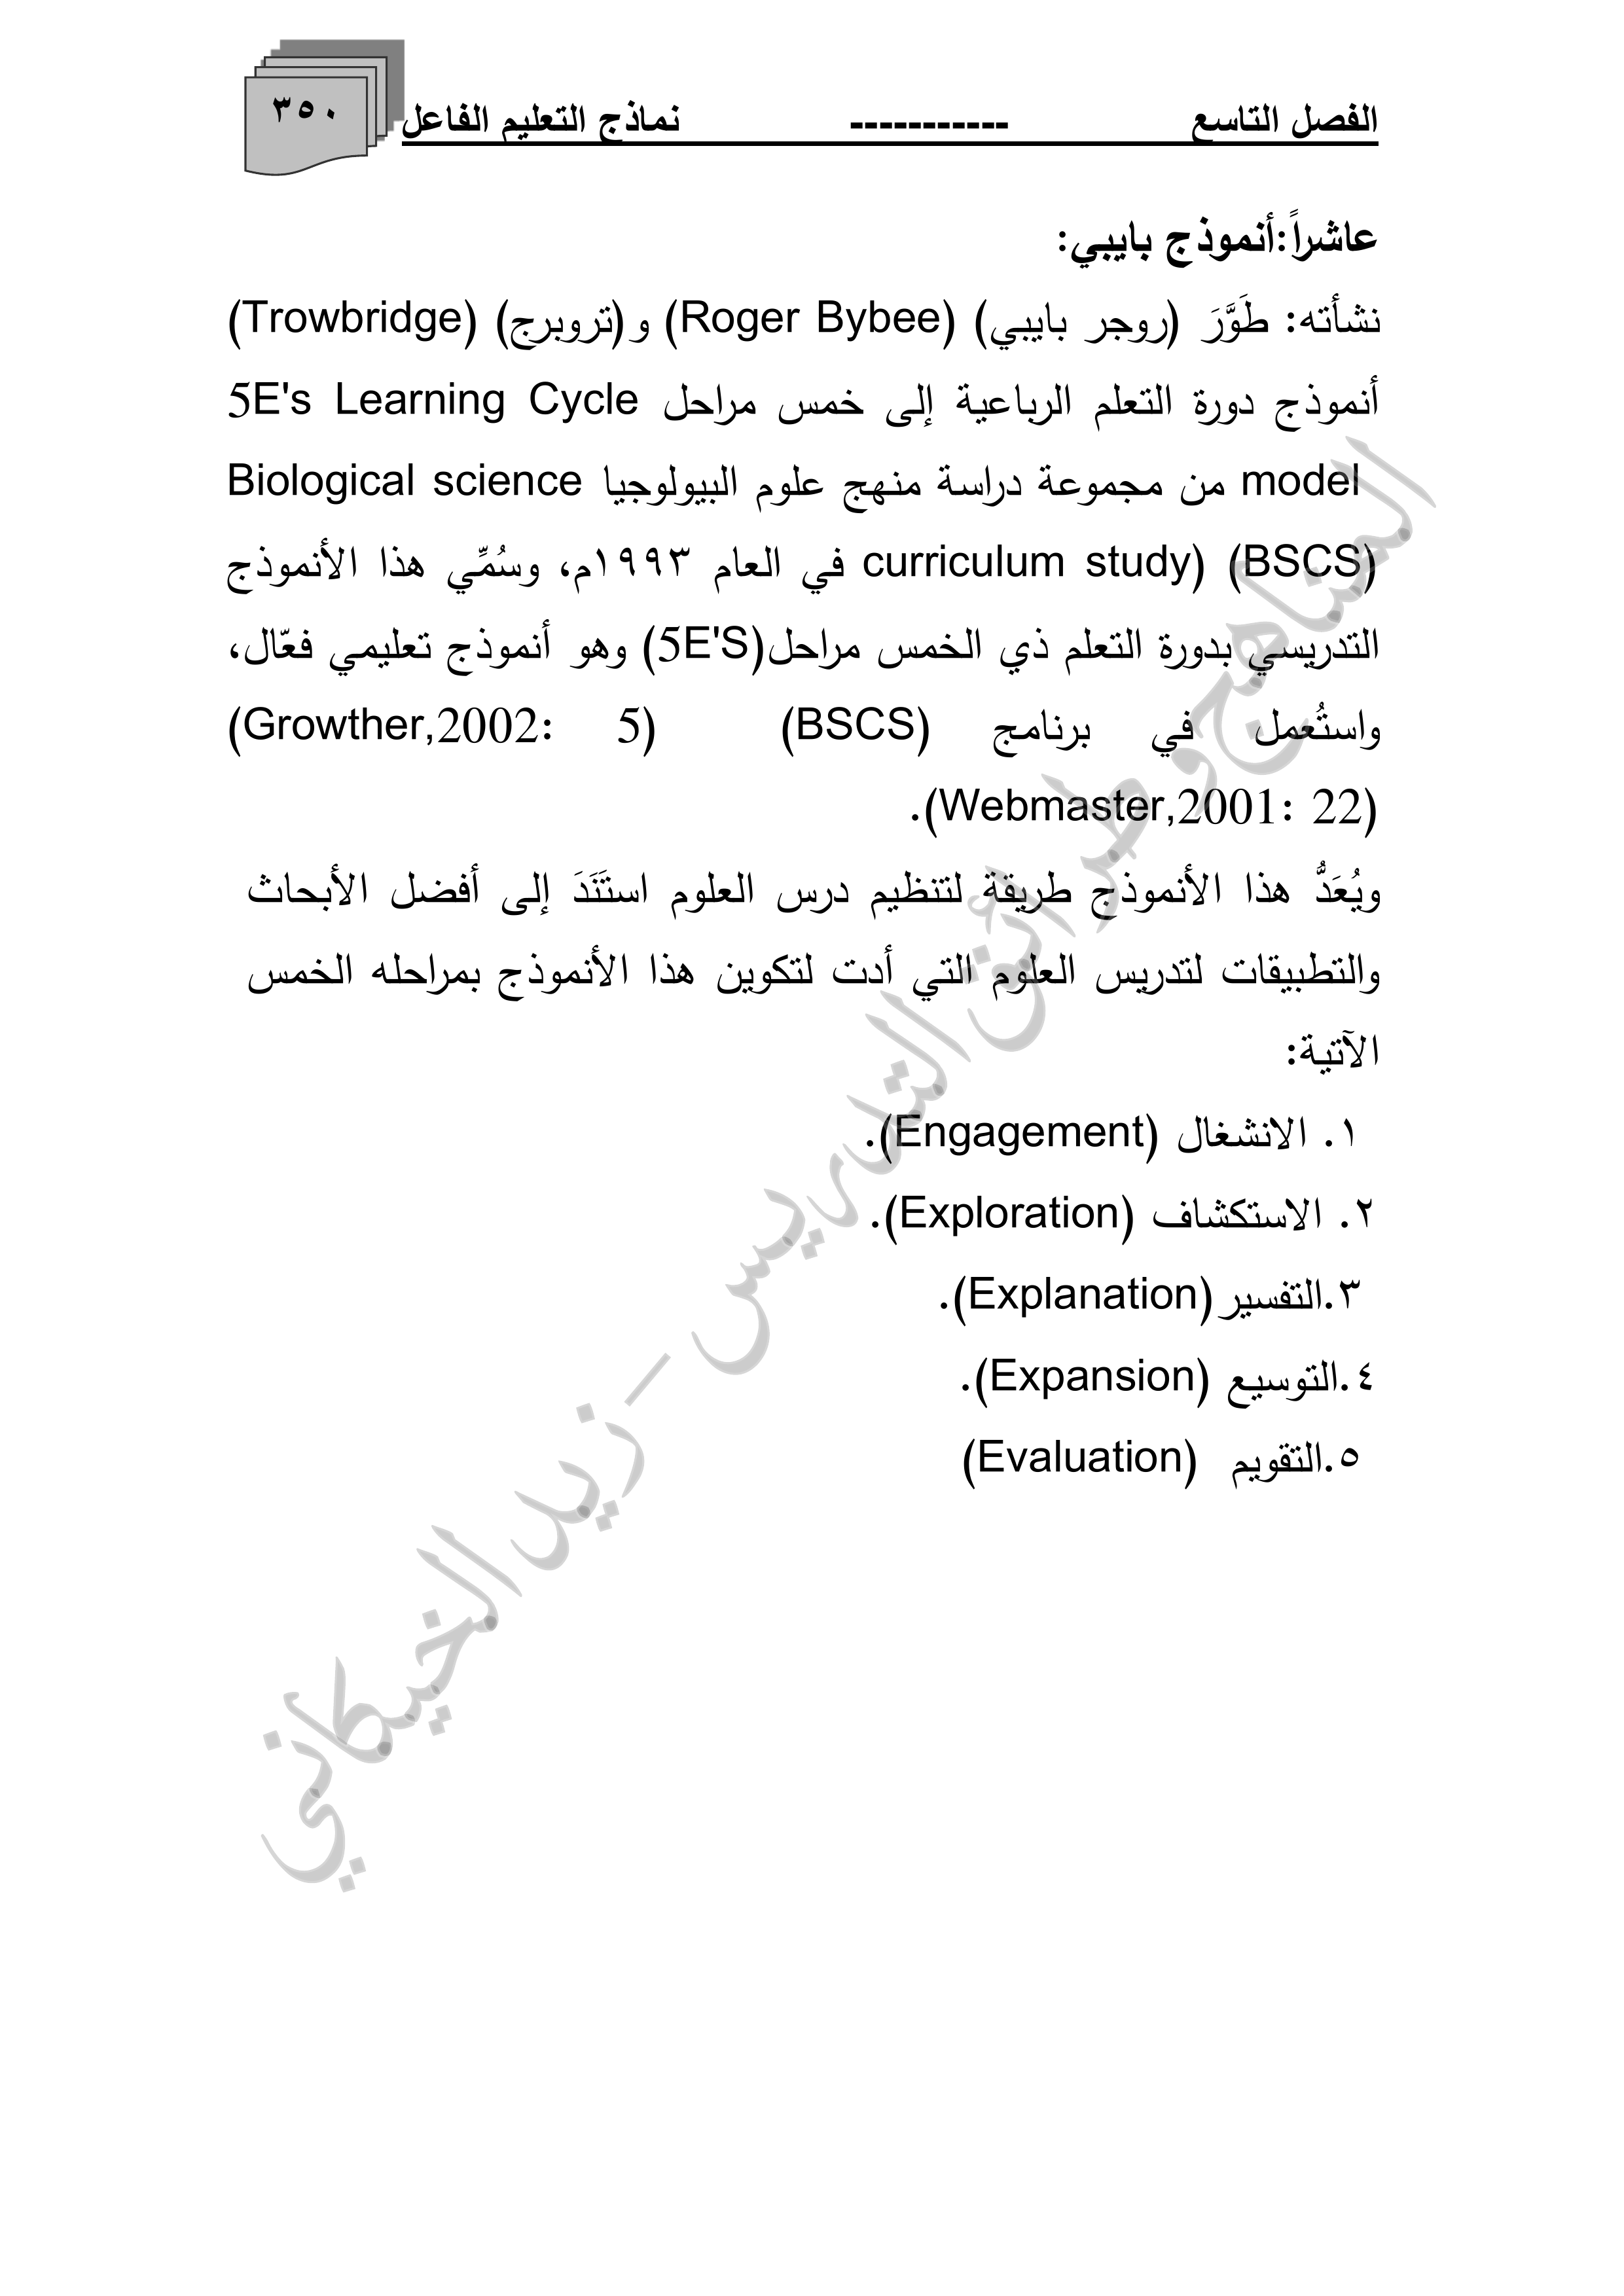 الفصل التاسع ----------- نماذج التعليم الفاعل ٣٥٠
عاشراً:أنموذج بايبي:
نشأته: طَوَّرَ (روجر بايبي) (Roger Bybee) و(تروبرج) (Trowbridge)
أنموذج دورة التعلم الرباعية إلى خمس مراحل 5E's Learning Cycle
model من مجموعة دراسة منهج علوم البيولوجيا Biological science
(BSCS) (curriculum study في العام ١٩٩٣م، وسُمِّي هذا الأنموذج
التدريسي بدورة التعلم ذي الخمس مراحل(5E'S) وهو أنموذج تعليمي فعّال،
واستُعمل في برنامج (BSCS) (Growther,2002: 5)
(Webmaster,2001: 22).
ويُعَدُّ هذا الأنموذج طريقة لتنظيم درس العلوم استَنَدَ إلى أفضل الأبحاث
والتطبيقات لتدريس العلوم التي أدت لتكوين هذا الأنموذج بمراحله الخمس
الآتية:
١. الانشغال (Engagement).
٢. الاستكشاف (Exploration).
٣.التفسير(Explanation).
٤.التوسيع (Expansion).
٥.التقويم (Evaluation)
المناهج وطرائق التدريس – زيد الخيكاني